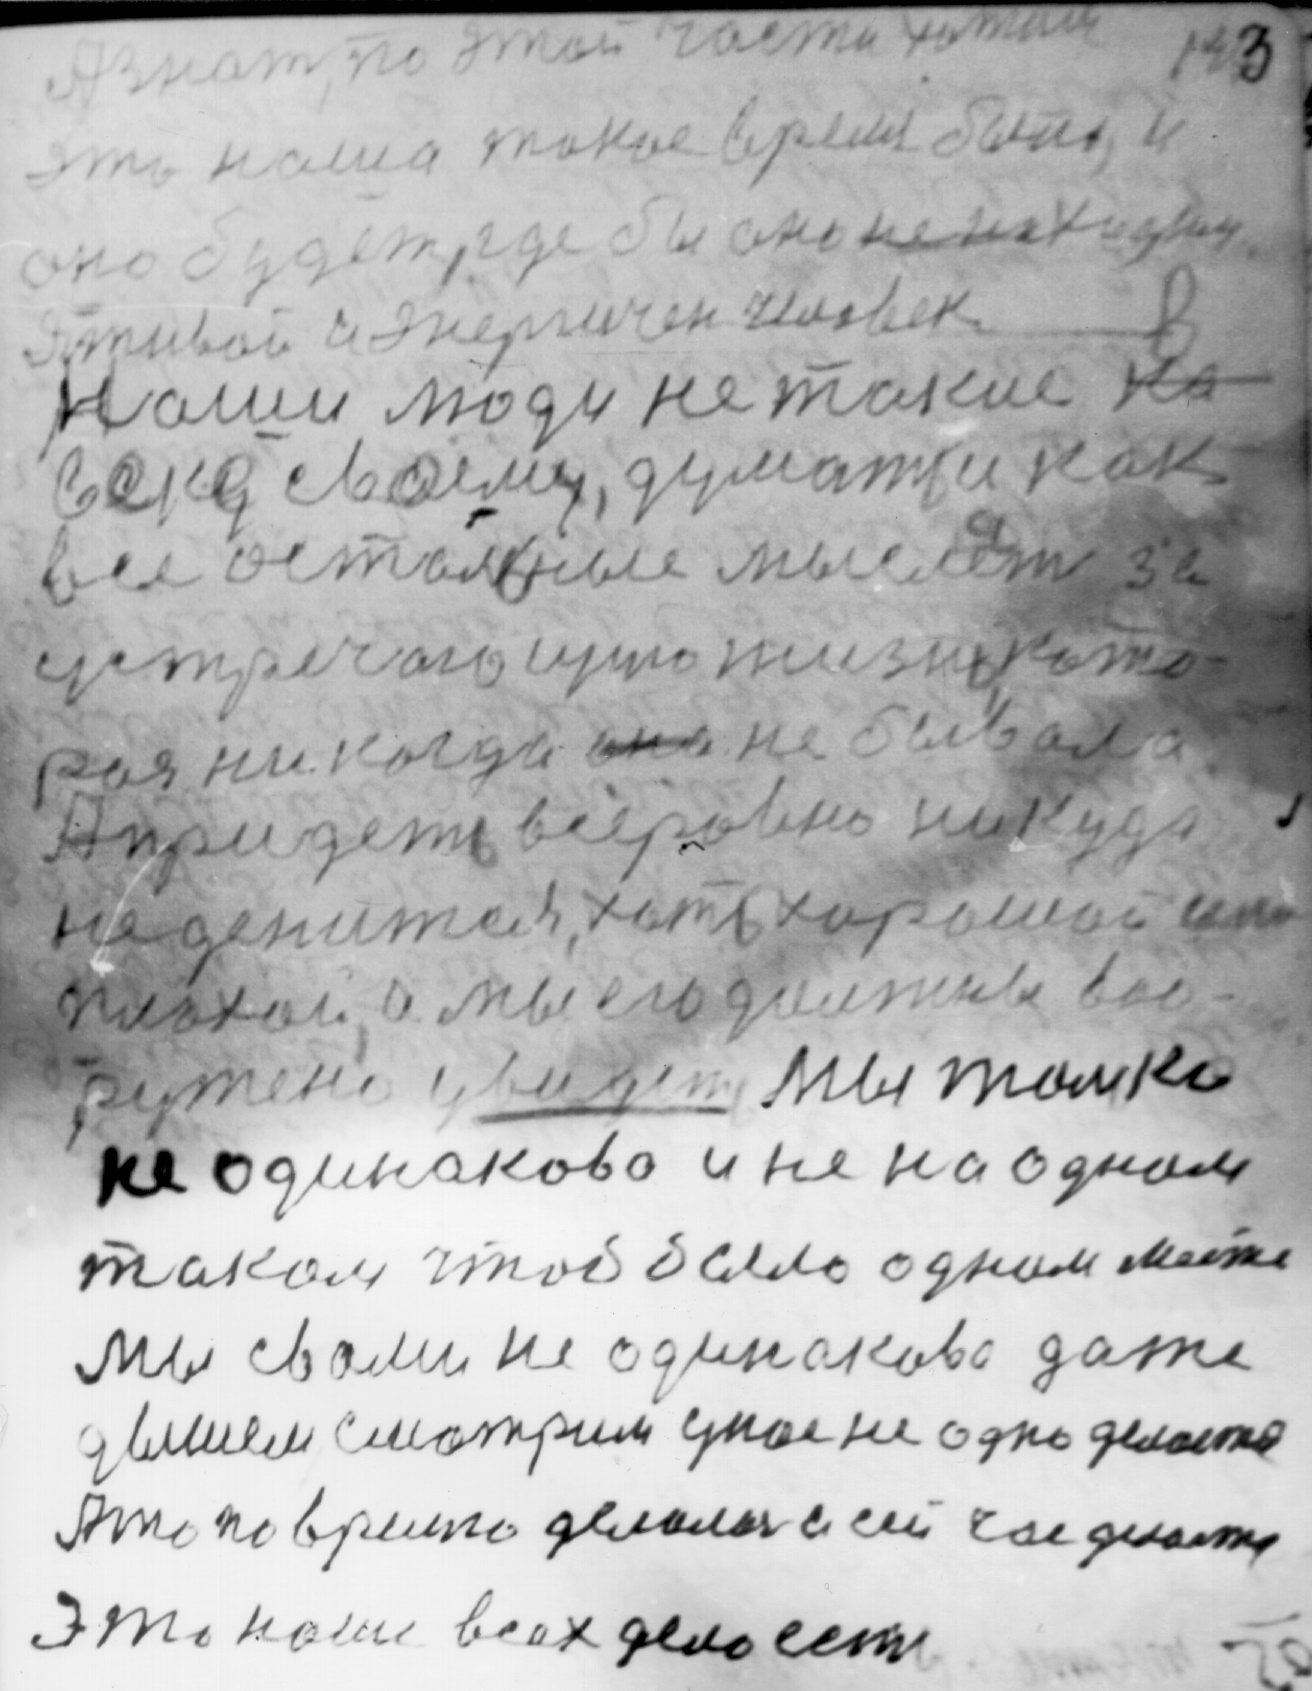 А знат, по этой части хотим 3
это наша такое время было, и
оно будет, где бы оно не находил
Жтивой и энергичен человек в
Наши люди не такие на
веку своему, думат, и как
все остальные мыслят за
устречающую жизнь, кото-
рая никогда она не бывала
А придеть всёровно никуда
не денится, хоть хорошой или
плохой, а мы его должны воо-
ружено увидеть Мы толко
не одинаково и не на одном
таком чтоб было одном месте
Мы свами не одинаково даже
дышем смотрим унас не одно делается
А то по время делалася и сей час делается
Это наше всех дело есть